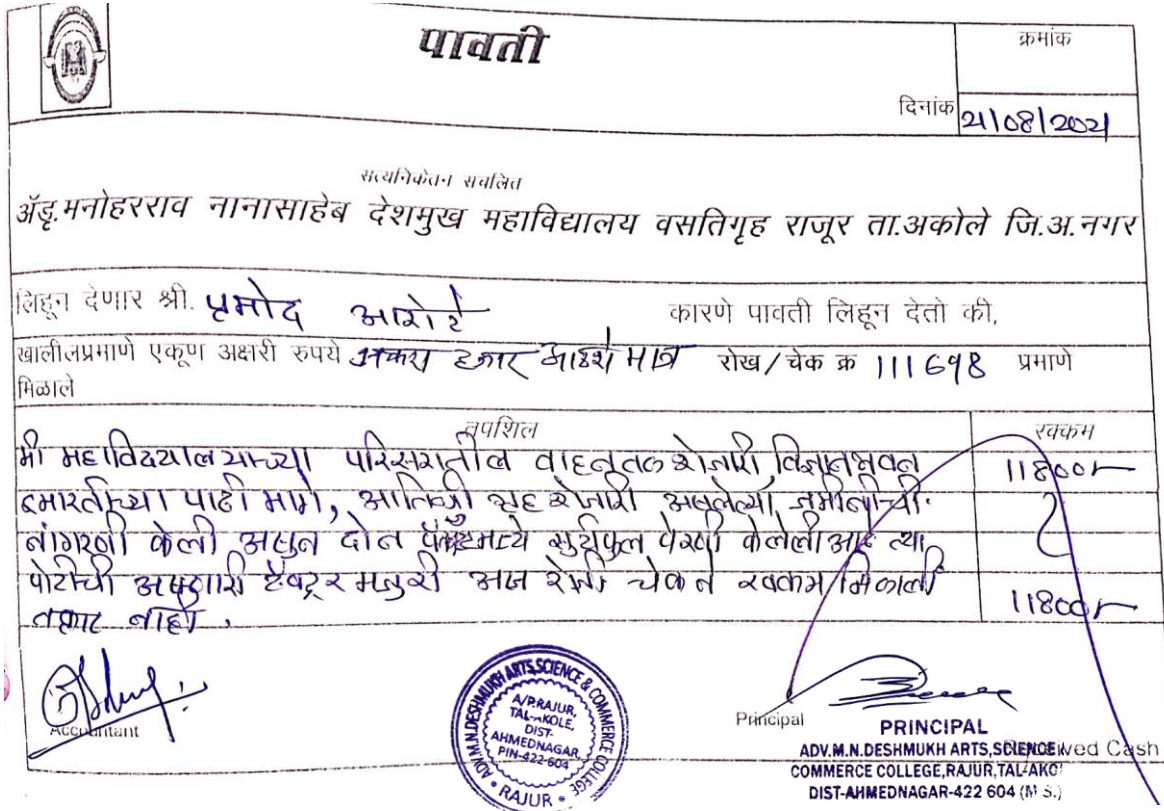 पावती
क्रमांक
दिनांक 21/08/2021
सत्यनिकेतन संचलित
ॲड.मनोहरराव नानासाहेब देशमुख महाविद्यालय वसतिगृह राजूर ता.अकोले जि.अ.नगर
लिहून देणार श्री. प्रमोद आरोटे कारणे पावती लिहून देतो की,
खालीलप्रमाणे एकूण अक्षरी रुपये अकरा हजार आठशे मात्र रोख/चेक क्र 111698 प्रमाणे
मिळाले
तपशिल रक्कम
मी महाविद्यालयाच्या परिसरातील वाहनतळ शेजारी विज्ञानभवन 11800/-
इमारतीच्या पाठी मागे, अतिथी गृह शेजारी असलेल्या जमीनीची
नांगरणी केली असुन दोन सुर्यफुल पेरणी केलेली आहे त्या
पोटीची असणारी ट्रॅक्टर मजुरी आज रोजी चेकने रक्कम मिळाली 11800/-
तक्रार नाही.
Accountant
ADV.M.N.DESHMUKH ARTS,SCIENCE & COMMERCE COLLEGE
RAJUR
A/P.RAJUR,
TAL-AKOLE,
DIST-
AHMEDNAGAR
PIN-422 604
Principal
PRINCIPAL
ADV.M.N.DESHMUKH ARTS,SCIENCE
COMMERCE COLLEGE,RAJUR,TAL-AKO
DIST-AHMEDNAGAR-422 604 (M.S.)
Cash